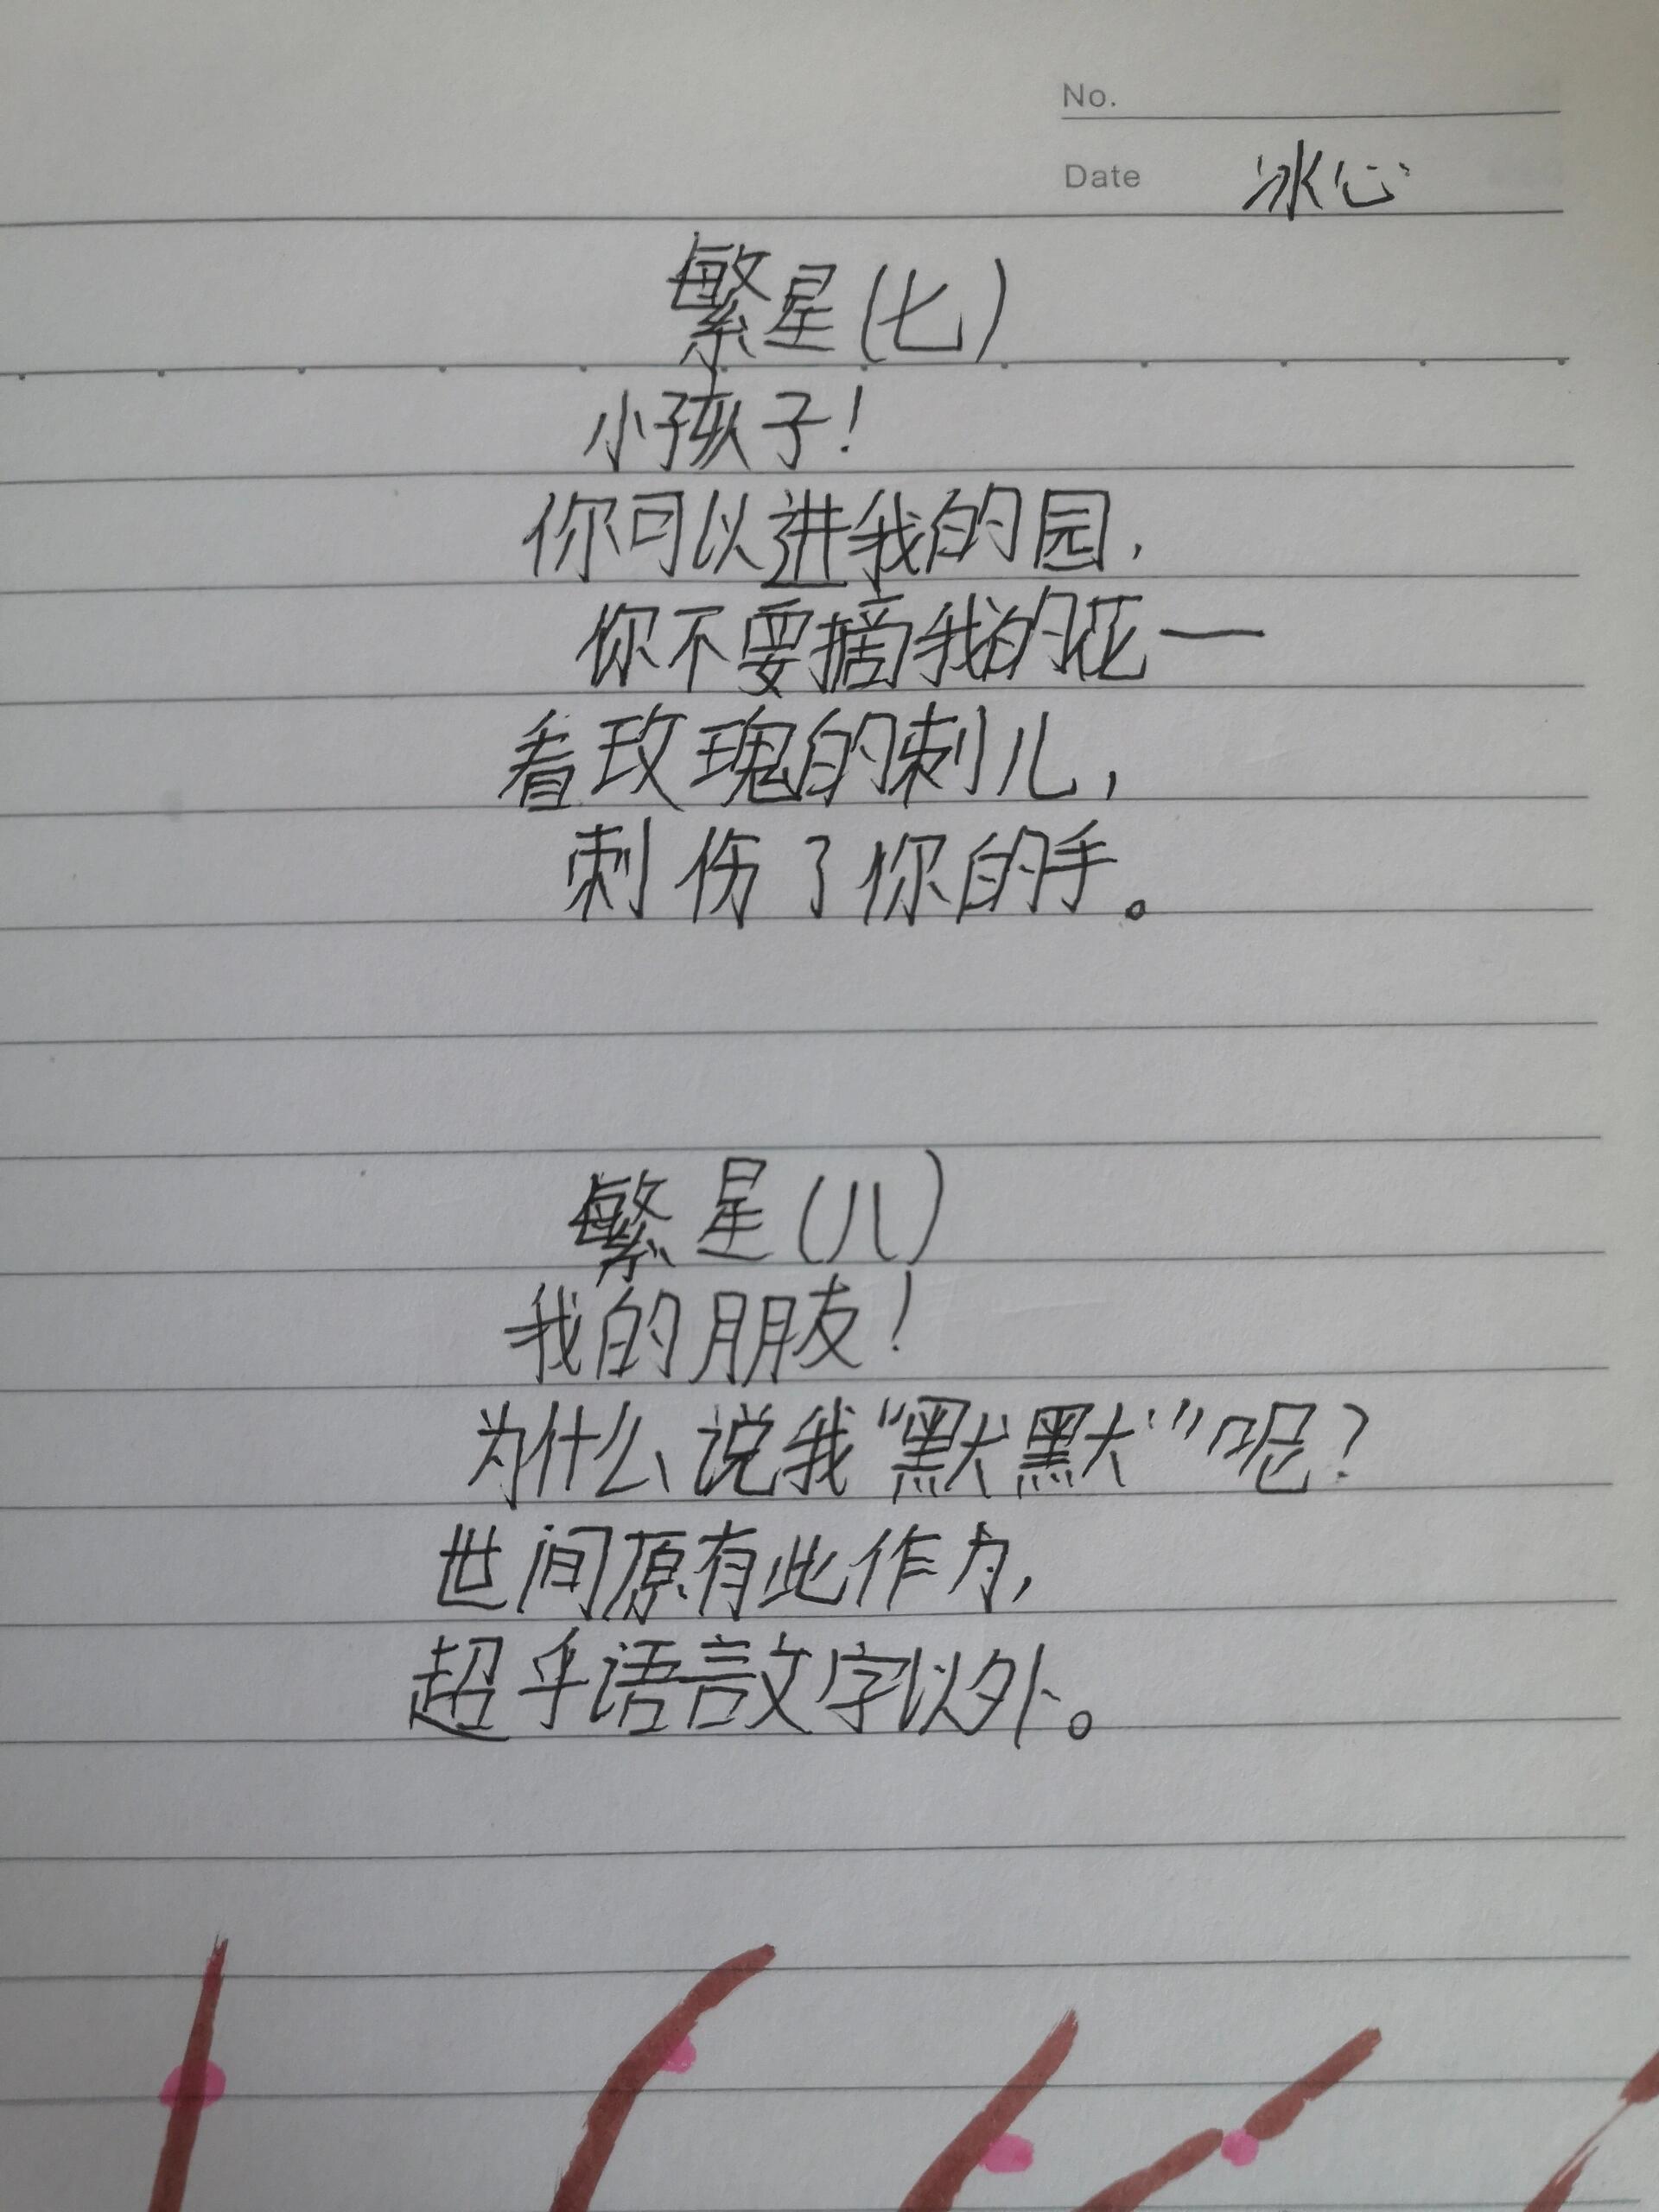 No.
Date 冰心
繁星(七)
小孩子!
你可以进我的园,
你不要摘我的花一
看玫瑰的刺儿,
刺伤了你的手。
繁星(八)
我的朋友!
为什么说我“默默”呢?
世间原有此作为,
超乎语言文字以外。